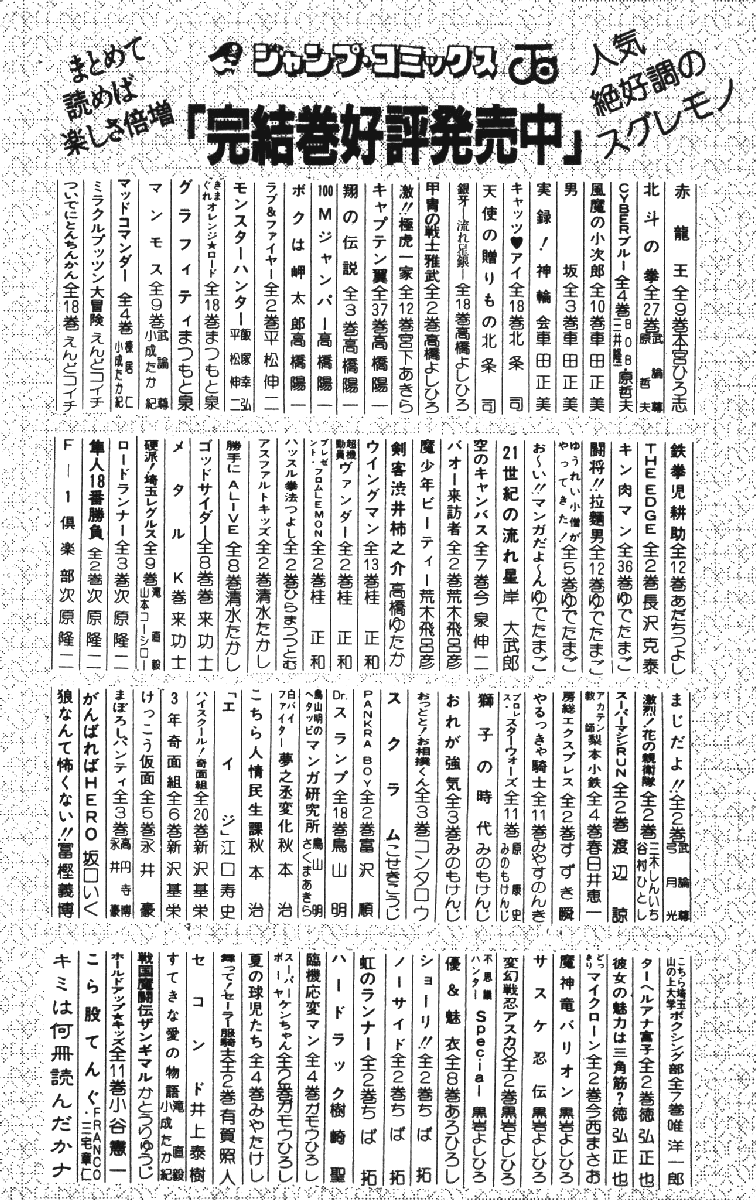 まとめて
読めば
楽しさ倍増
ジャンプ・コミックス
人気
絶好調の
スグレモノ
「完結巻好評発売中」
赤龍王 全9巻 本宮ひろ志
北斗の拳 全27巻 武論尊 原哲夫
CYBERブルー 全4巻 BOB・原哲夫 三井隆一
風魔の小次郎 全10巻 車田正美
男坂 全3巻 車田正美
実録!神輪会 車田正美
キャッツ♥アイ 全18巻 北条司
天使の贈りもの 北条司
銀牙―流れ星 銀― 全18巻 高橋よしひろ
甲冑の戦士雅武 全2巻 高橋よしひろ
激!!極虎一家 全12巻 宮下あきら
キャプテン翼 全37巻 高橋陽一
翔の伝説 全3巻 高橋陽一
100Mジャンパー 高橋陽一
ボクは岬太郎 高橋陽一
ラブ&ファイヤー 全2巻 平松伸二
モンスターハンター 飯塚幸弘 平松伸二
きまぐれオレンジ★ロード 全18巻 まつもと泉
グラフィティ まつもと泉
マンモス 全9巻 武論尊 小成たか紀
マッドコマンダー 全4巻 小成たか紀
ミラクルプッツン大冒険 えんどコイチ
ついでにとんちんかん 全18巻 えんどコイチ
鉄拳児耕助 全12巻 あだちつよし
THE EDGE 全2巻 長沢克泰
キン肉マン 全36巻 ゆでたまご
闘将!!拉麺男 全12巻 ゆでたまご
ゆうれい小僧がやってきた! 全5巻 ゆでたまご
お〜い!!マンガだよ〜ん ゆでたまご
21世紀の流れ星 岸大武郎
空のキャンバス 全7巻 今泉伸二
バオー来訪者 全2巻 荒木飛呂彦
魔少年ビーティー 荒木飛呂彦
剣客渋井柿之介 高橋ゆたか
ウイングマン 全13巻 桂正和
超機動員ヴァンダー 全2巻 桂正和
プレゼント・フロムLEMON 全2巻 桂正和
ハッスル拳法つよし 全2巻 ひらまつつとむ
アスファルトキッズ 全2巻 清水たかし
勝手にALIVE 全8巻 清水たかし
ゴッドサイダー 全8巻 巻来功士
メタルK 巻来功士
硬派!埼玉レグルス 全9巻 滝直毅 山本コーシロー
ロードランナー 全3巻 次原隆二
隼人18番勝負 全2巻 次原隆二
F-1倶楽部 次原隆二
まじだよ!! 全2巻 武論尊 弓月光
激烈!花の親衛隊 全2巻 三木しんいち 谷村ひとし
スーパーマシンRUN 全2巻 渡辺諒
アカテン教師梨本小鉄 全4巻 春日井恵一
房総エクスプレス 全2巻 すずき瞬
やるっきゃ騎士 全11巻 みやすのんき
プロレススターウォーズ 全11巻 原康史 みのもけんじ
獅子の時代 みのもけんじ
おれが強気 全3巻 みのもけんじ
おっとと!お相撲くん 全3巻 コンタロウ
スクラム こせきこうじ
PANKRA BOY 全2巻 富沢順
Dr.スランプ 全18巻 鳥山明
鳥山明のヘタッピマンガ研究所 鳥山明 さくまあきら
白バイファイター 夢之丞変化 秋本治
こちら人情民生課 秋本治
「エイジ」 江口寿史
ハイスクール!奇面組 全20巻 新沢基栄
3年奇面組 全6巻 新沢基栄
けっこう仮面 全5巻 永井豪
まぼろしパンティ 全3巻 高円寺博 永井豪
がんばればHERO 坂口いく
狼なんて怖くない!! 冨樫義博
こちら埼玉山の上大学ボクシング部 全7巻 唯洋一郎
ターヘルアナ富子 全2巻 徳弘正也
彼女の魅力は三角筋? 徳弘正也
どっきりマイクローン 全2巻 今西まさお
魔神竜バリオン 黒岩よしひろ
サスケ忍伝 黒岩よしひろ
変幻戦忍アスカ♡ 全2巻 黒岩よしひろ
不思議ハンターSpecial 黒岩よしひろ
優&魅衣 全8巻 あろひろし
ショーリ!! 全2巻 ちば拓
ノーサイド 全2巻 ちば拓
虹のランナー 全2巻 ちば拓
ハードラック 樹崎聖
臨機応変マン 全4巻 ガモウひろし
スーパーボーヤけんちゃん 全2巻 ガモウひろし
夏の球児たち 全4巻 みやたけし
舞って!セーラー服騎士 全2巻 有賀照人
セコンド 井上泰樹
すてきな愛の物語 滝直毅 小成たか紀
戦国魔闘伝ザンギマル かとうりゅうじ
ホールドアップ★キッズ 全11巻 小谷憲一
こら股てんぐ FRANCO・三宅章仁
キミは何冊読んだかナ